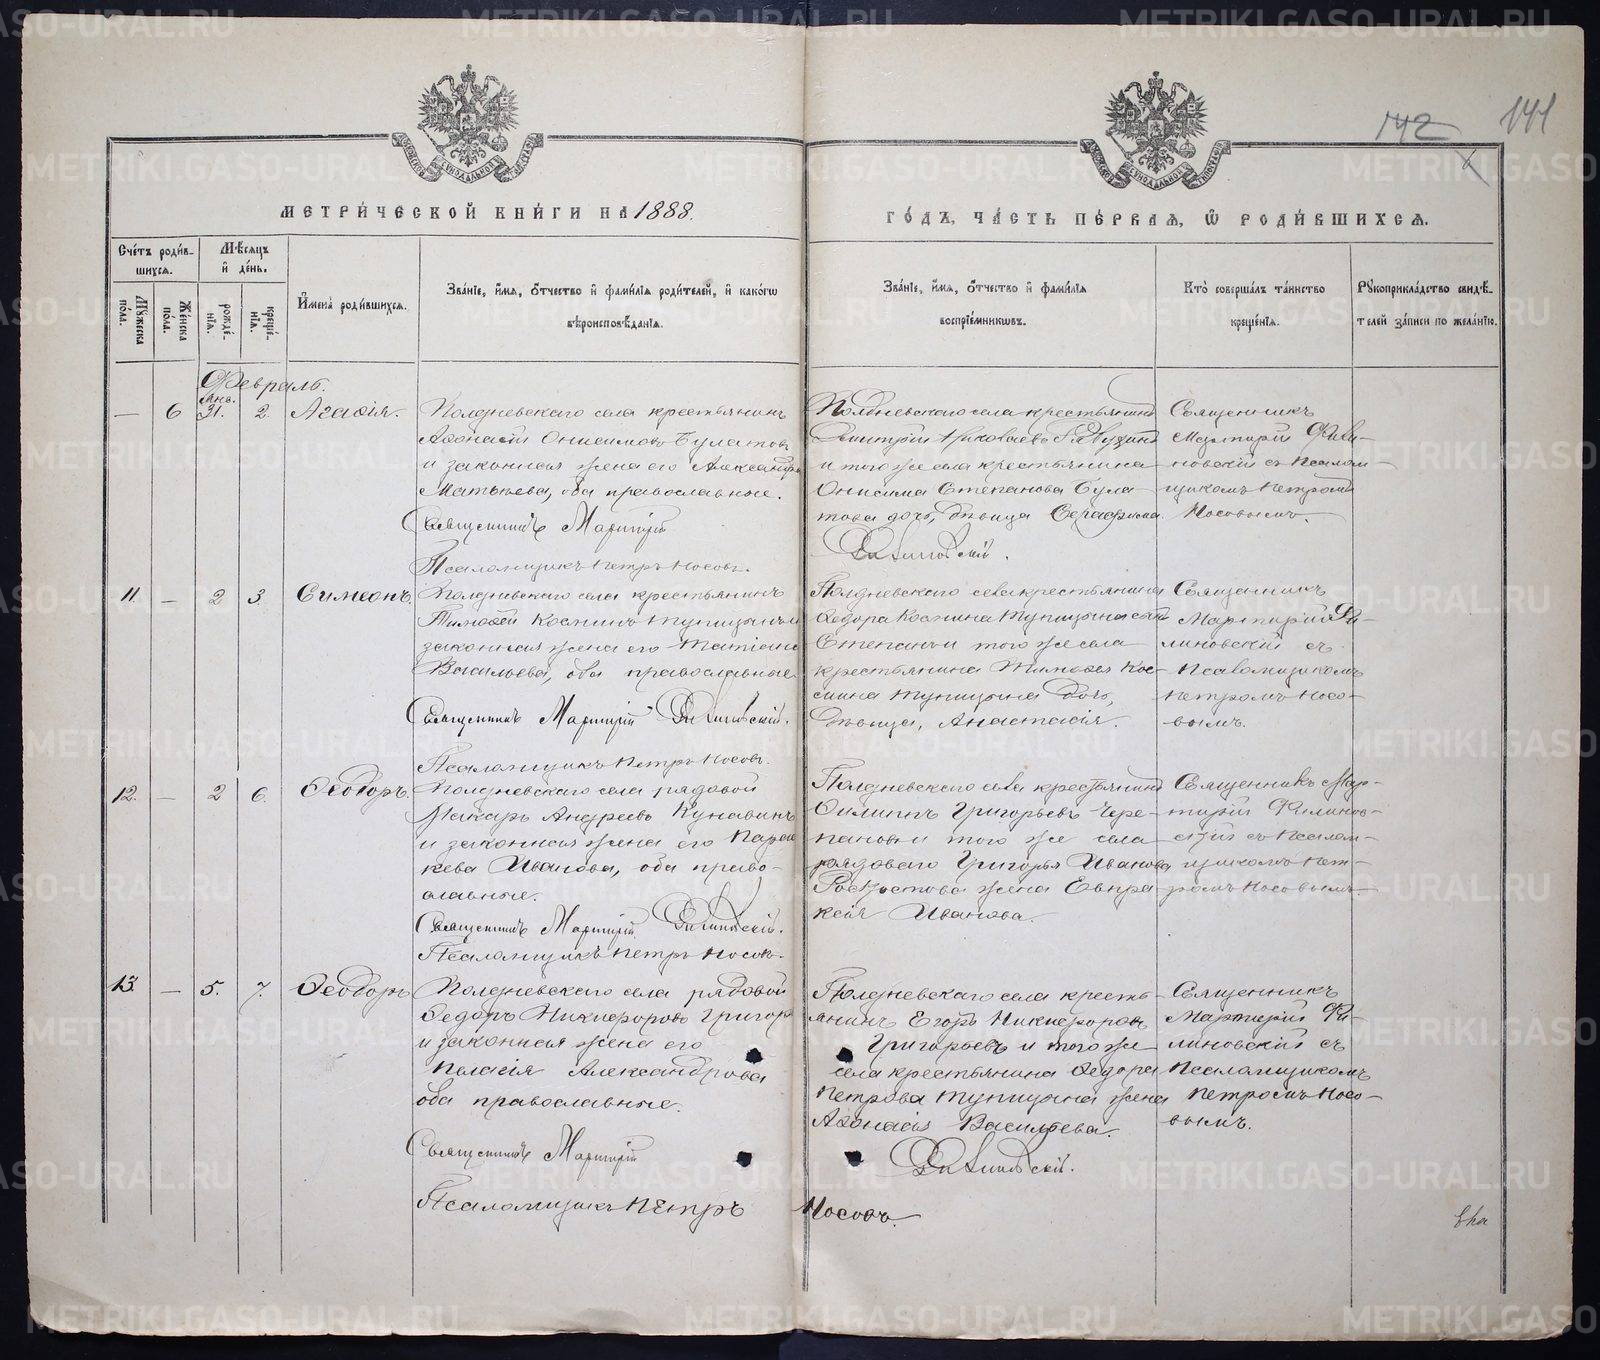 142 141
МЕТРИЧЕСКОЙ КНИГИ НА 1888.
ГОДЪ, ЧАСТЬ ПЕРВАЯ, Ѡ РОДИВШИХСЯ.
Счетъ родив-
шихся.
Мужеска
пола.
Женска
пола.
Мѣсяцъ
и день.
рожде-
нія.
креще-
нія.
Имена родившихся.
Званіе, имя, отчество и фамилія родителей, и какогѡ
вѣроисповѣданія.
Званіе, имя, отчество и фамилія
воспріемникѡвъ.
Кто совершалъ таинство
крещенія.
Рукоприкладство свидѣ-
телей записи по желанію.
Февраль.
— 6 Янв. 31. 2. Агаѳія.
Полдневскаго села крестьянинъ
Аѳанасій Онисимовъ Булатовъ
и законная жена его Александра
Матѳеева, оба православные.
Священникъ Мартирій
Псаломщикъ Петръ Носовъ.
Полдневскаго села крестьянинъ
Дмитрій Николаевъ
и того же села крестьянина
Онисима Степанова Була-
това дочь, дѣвица Серафима.
Филиновскій.
Священникъ
Мартирій Фили-
новскій съ Псалом-
щикомъ Петромъ
Носовымъ.
11. — 2 3. Симеонъ.
Полдневскаго села крестьянинъ
Тимоѳей Косминъ Тупицынъ и
законная жена его Татіана
Васильева, оба православные
Священникъ Мартирій Филиновскій.
Псаломщикъ Петръ Носовъ.
Полдневскаго села крестьянина
Ѳедора Космина Тупицына сынъ
Степанъ и того же села
крестьянина Тимоѳея Кос-
мина Тупицына дочь,
дѣвица, Анастасія.
Священникъ
Мартирій Фи-
линовскій съ
Псаломщикомъ
Петромъ Носо-
вымъ.
12. — 2 6. Ѳеодоръ.
Полдневскаго села рядовой
Макаръ Андреевъ Кунавинъ
и законная жена его Парас
кева Иванова, оба право-
славные.
Священникъ Мартирій Филиновскій.
Псаломщикъ Петръ Носовъ.
Полдневскаго села крестьянинъ
Филиппъ Григорьевъ Чере-
пановъ и того же села
рядоваго Григорья Иванова
жена Евпра-
ксія Иванова.
Священникъ Мар-
тирій Филинов-
скій съ Псалом-
щикомъ Пет-
ромъ Носовымъ.
13. — 5. 7. Ѳеодоръ
Полдневскаго села рядовой
Ѳедоръ Никифоровъ Григорь
и законная жена его
Пелагія Александрова
оба православные.
Священникъ Мартирій
Псаломщикъ Петръ
Полдневскаго села кресть-
янинъ Егоръ Никифоровъ
Григорьевъ и того же
села крестьянина Ѳедора
Петрова Тупицына жена
Аѳанасія Васильева.
Филиновскій.
Носовъ.
Священникъ
Мартирій Фи-
линовскій съ
Псаломщикомъ
Петромъ Носо-
вымъ.
METRIKI.GASO-URAL.RU